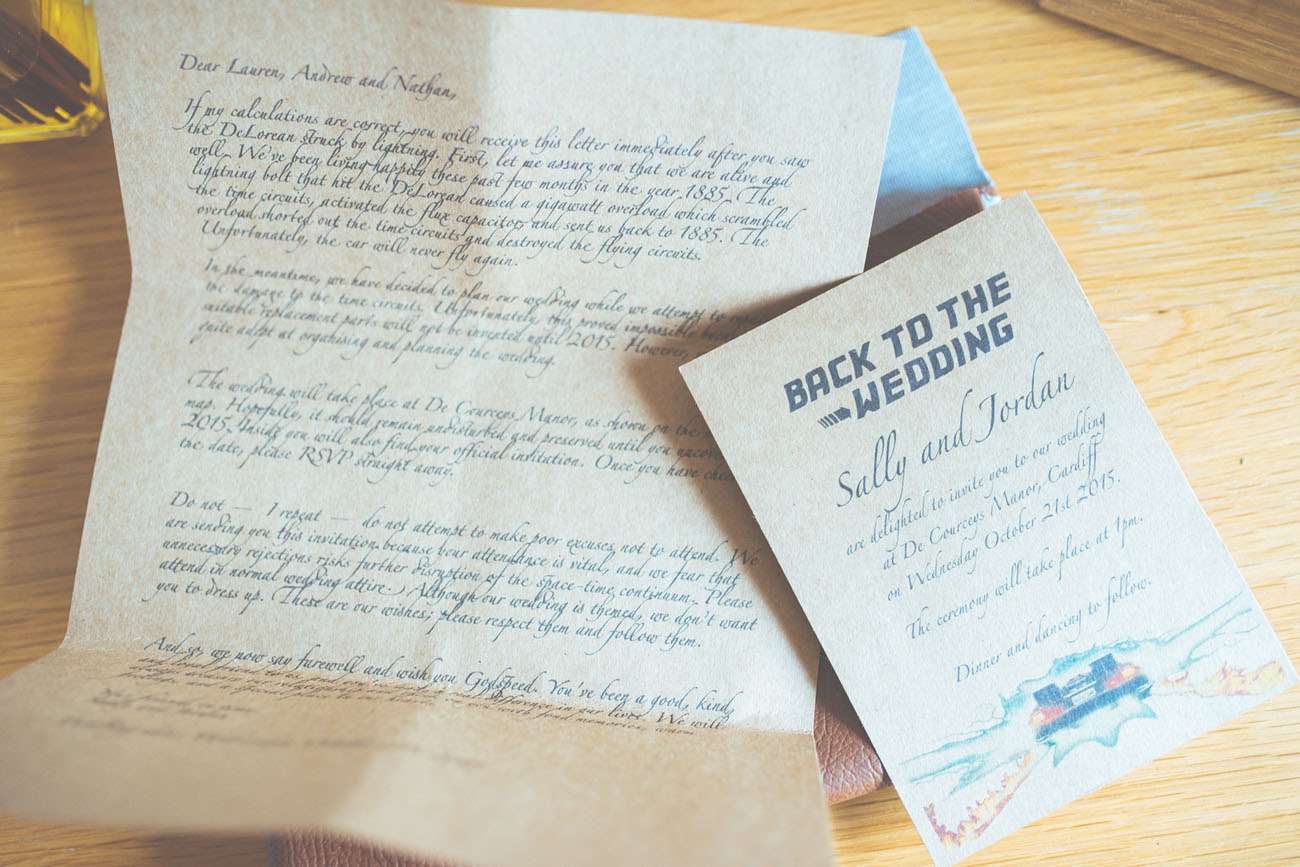 Dear Lauren, Andrew and Nathan,
If my calculations are correct, you will receive this letter immediately after you saw
the DeLorean struck by lightning. First, let me assure you that we are alive and
well. We've been living happily these past few months in the year 1885. The
lightning bolt that hit the DeLorean caused a gigawatt overload which scrambled
the time circuits, activated the flux capacitor, and sent us back to 1885. The
overload shorted out the time circuits and destroyed the flying circuits.
Unfortunately, the car will never fly again.
In the meantime, we have decided to plan our wedding while we attempt to
the damage to the time circuits. Unfortunately, this proved impossible
suitable replacement parts will not be invented until 2015. However,
quite adept at organising and planning the wedding.
The wedding will take place at De Courceys Manor, as shown on the
map. Hopefully, it should remain undisturbed and preserved until you
2015. Inside you will also find your official invitation. Once you have
the date, please RSVP straight away.
Do not — I repeat — do not attempt to make poor excuses not to attend. We
are sending you this invitation because your attendance is vital, and we fear that
rejections risks further disruption of the space-time continuum. Please
attend in normal wedding attire. Although our wedding is themed, we don't want
you to dress up. These are our wishes; please respect them and follow them.
And so, we now say farewell and wish you Godspeed. You've been a good, kind,
difference in our lives. We will
BACK TO THE
WEDDING
Sally and Jordan
are delighted to invite you to our wedding
at De Courceys Manor, Cardiff
on Wednesday October 21st 2015.
The ceremony will take place at 1pm.
Dinner and dancing to follow.